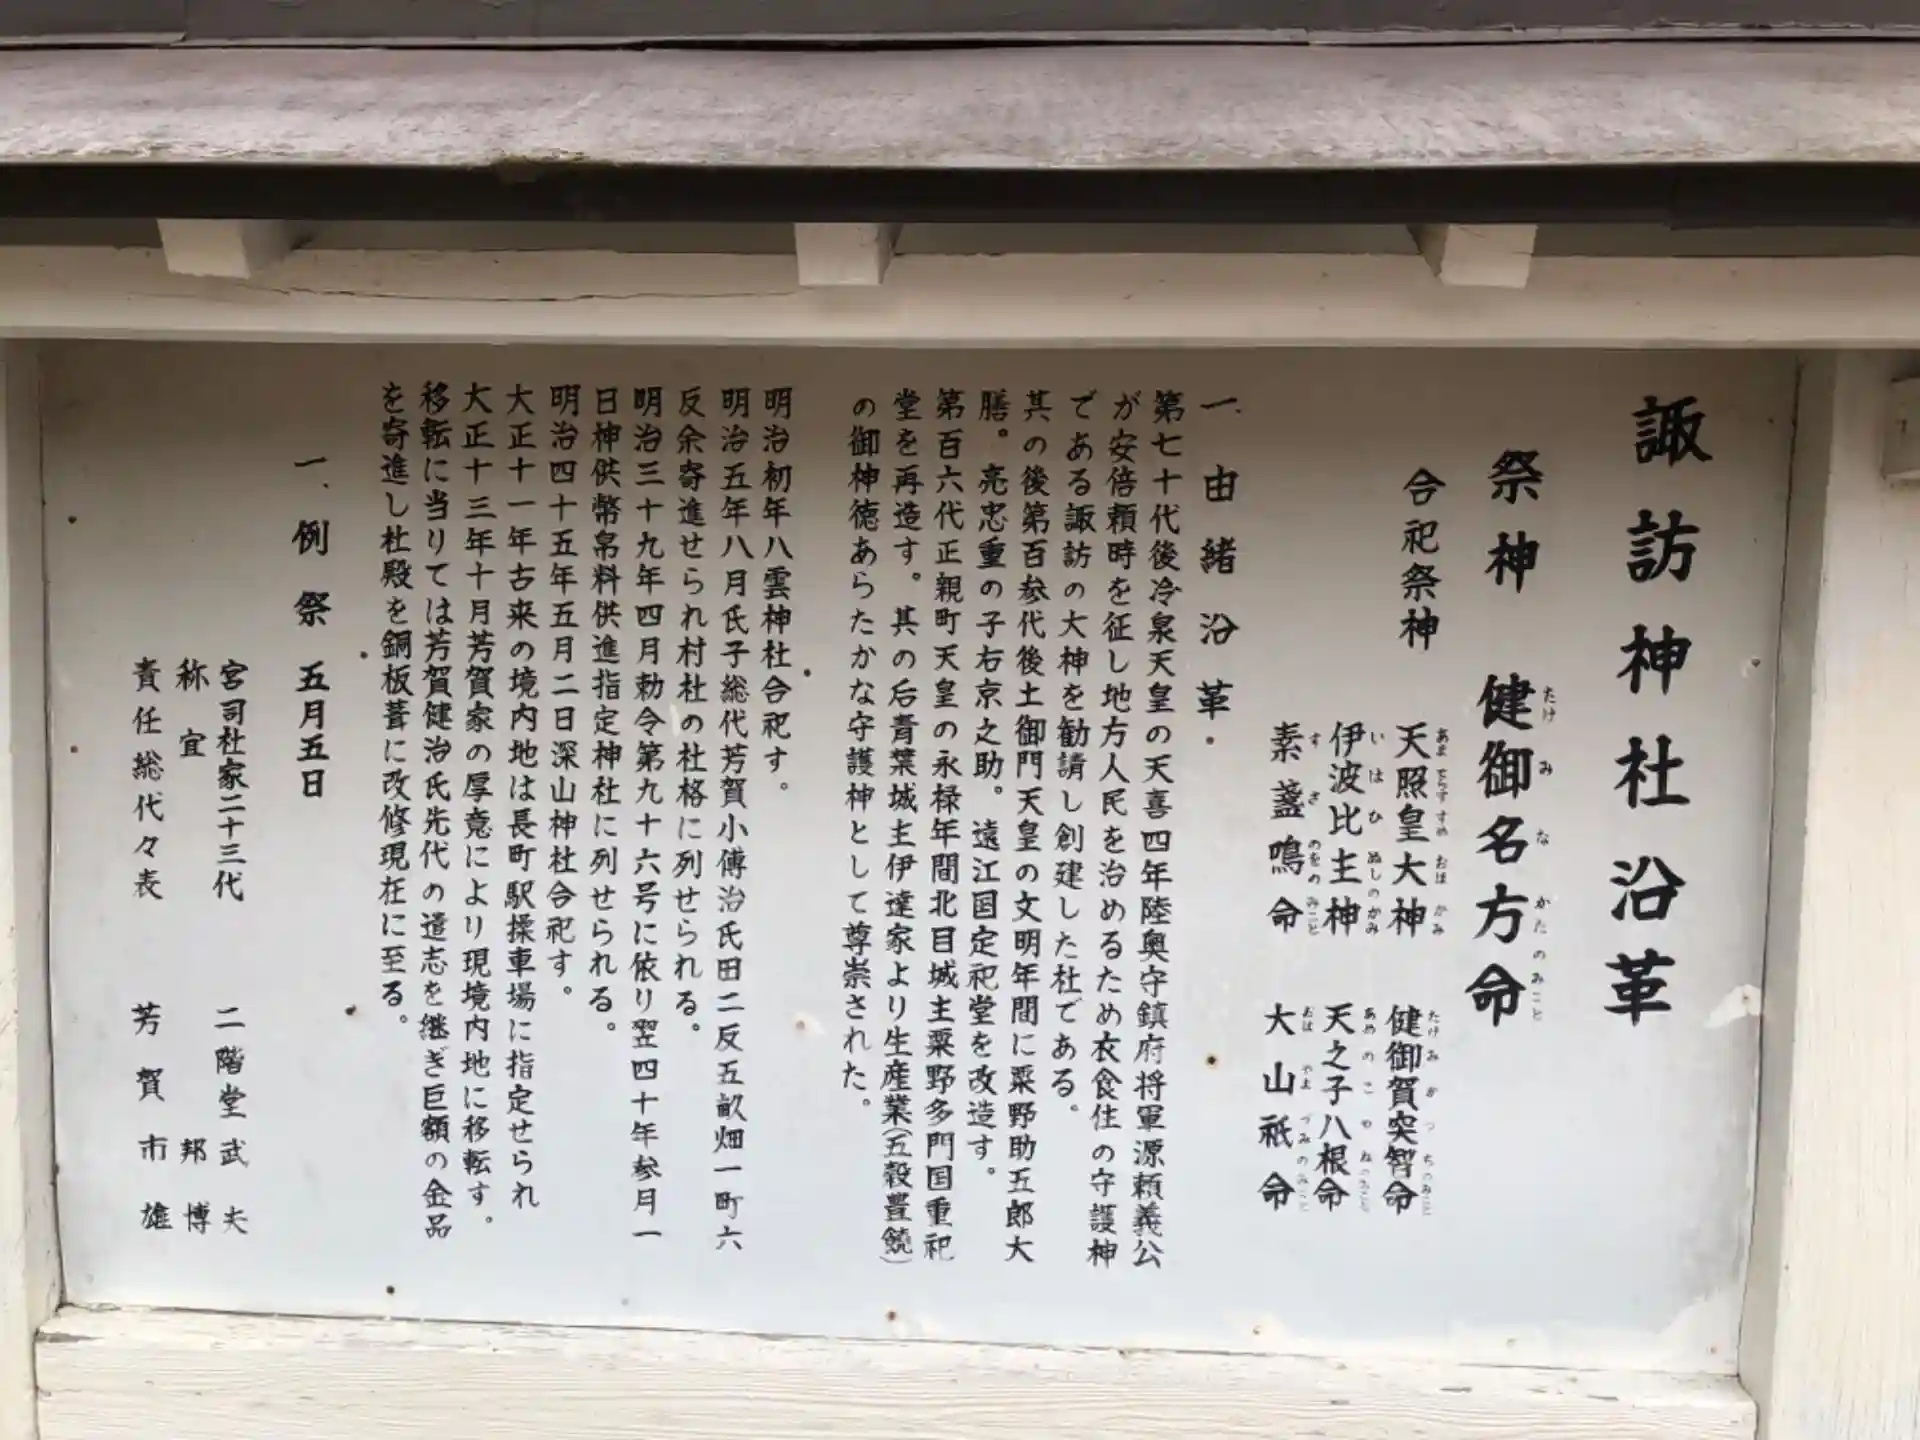 諏訪神社沿革
祭神 健御名方命
たけみなかたのみこと
合祀祭神
天照皇大神 健御賀突智命
伊波比主神 天之子八根命
素盞鳴命 大山祇命
一、由緒沿革
第七十代後冷泉天皇の天喜四年陸奥守鎮府将軍源頼義公
が安倍頼時を征し地方人民を治めるため衣食住の守護神
である諏訪の大神を勧請し創建した社である。
其の後第百参代後土御門天皇の文明年間に粟野助五郎大
膳。亮忠重の子右京之助。遠江国定祀堂を改造す。
第百六代正親町天皇の永禄年間北目城主粟野多門国重祀
堂を再造す。其の后青葉城主伊達家より生産業(五穀豊饒)
の御神徳あらたかな守護神として尊崇された。
明治初年八雲神社合祀す。
明治五年八月氏子総代芳賀小傅治氏田二反五畝畑一町六
反余寄進せられ村社の社格に列せられる。
明治三十九年四月勅令第九十六号に依り翌四十年参月一
日神供幣帛料供進指定神社に列せられる。
明治四十五年五月二日深山神社合祀す。
大正十一年古来の境内地は長町駅操車場に指定せられ
大正十三年十月芳賀家の厚意により現境内地に移転す。
移転に当りては芳賀健治氏先代の遺志を継ぎ巨額の金品
を寄進し社殿を銅板葺に改修現在に至る。
一、例祭 五月五日
宮司社家二十三代 二階堂武夫
称宜 邦博
責任総代々表 芳賀市雄